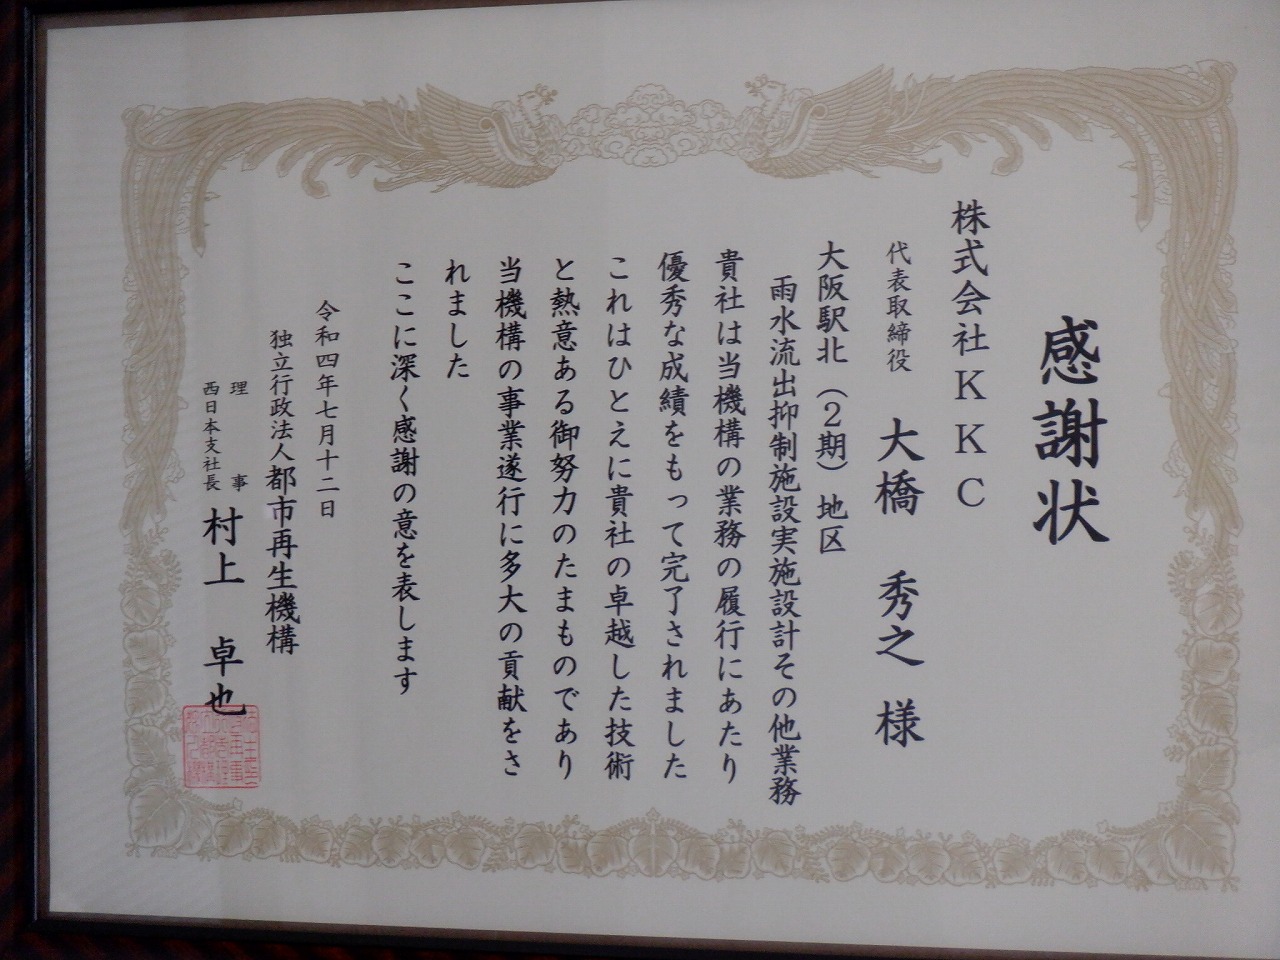 感謝状
株式会社KKC
代表取締役 大橋 秀之 様
大阪駅北(2期)地区
雨水流出抑制施設実施設計その他業務
貴社は当機構の業務の履行にあたり
優秀な成績をもって完了されました
これはひとえに貴社の卓越した技術
と熱意ある御努力のたまものであり
当機構の事業遂行に多大の貢献をさ
れました
ここに深く感謝の意を表します
令和四年七月十二日
独立行政法人都市再生機構
理事
西日本支社長 村上 卓也